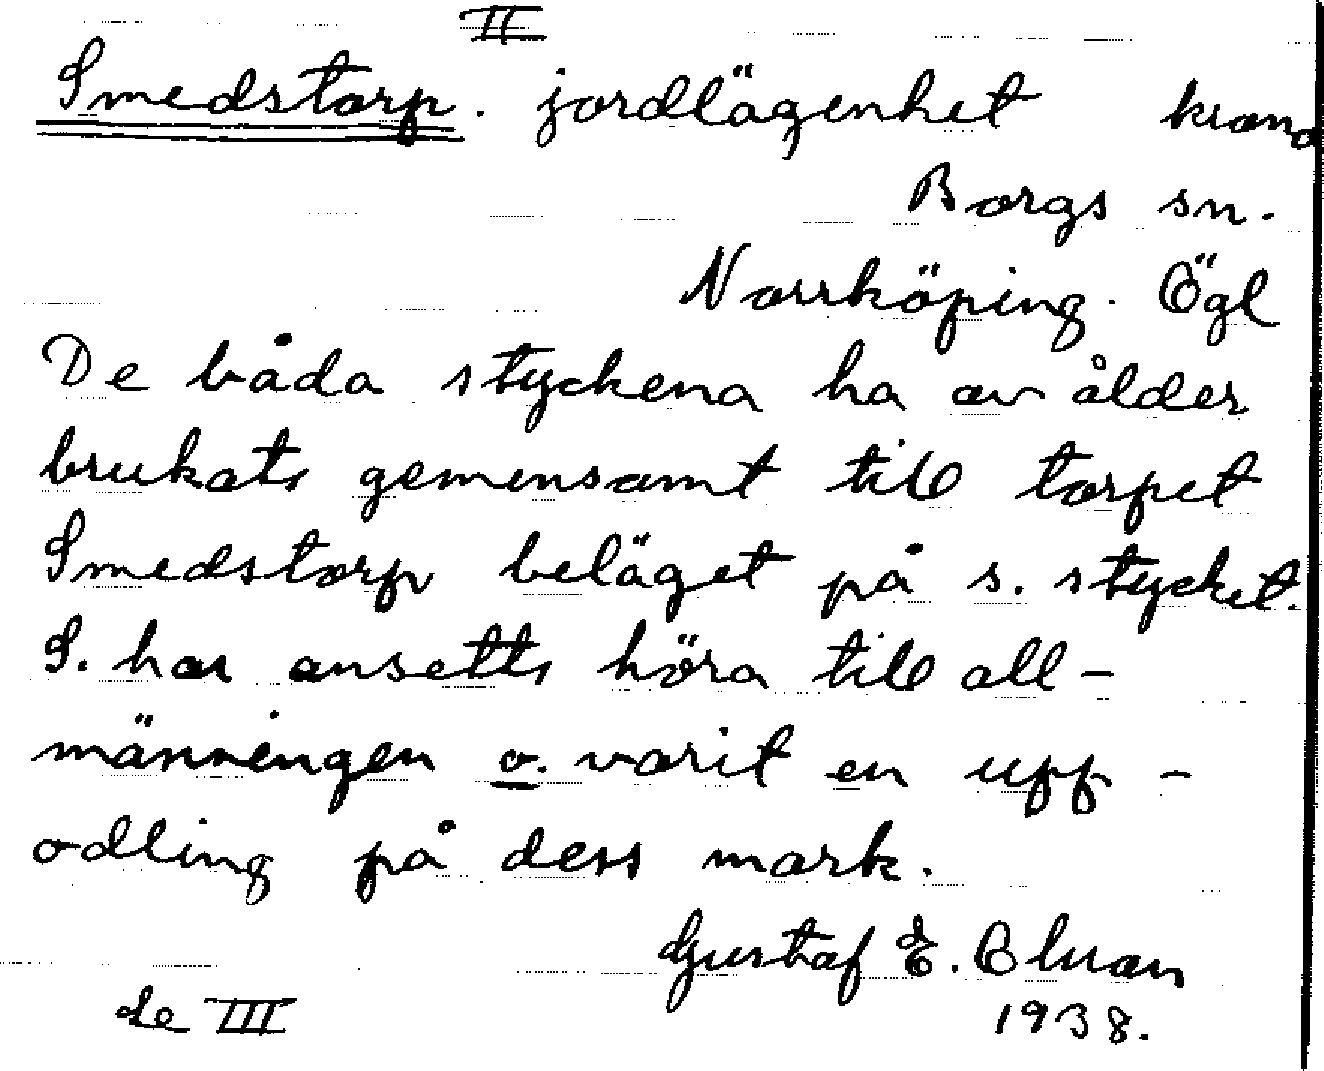 II
Smedstorp. jordlägenhet krono
Borgs sn.
Norrköping. Ögl
De båda styckena ha av ålder
brukats gemensamt till torpet
Smedstorp beläget på s. stycket.
S. har ansetts höra till all-
männingen o. varit en upp-
odling på dess mark.
Gustaf E.
1938.
Se III